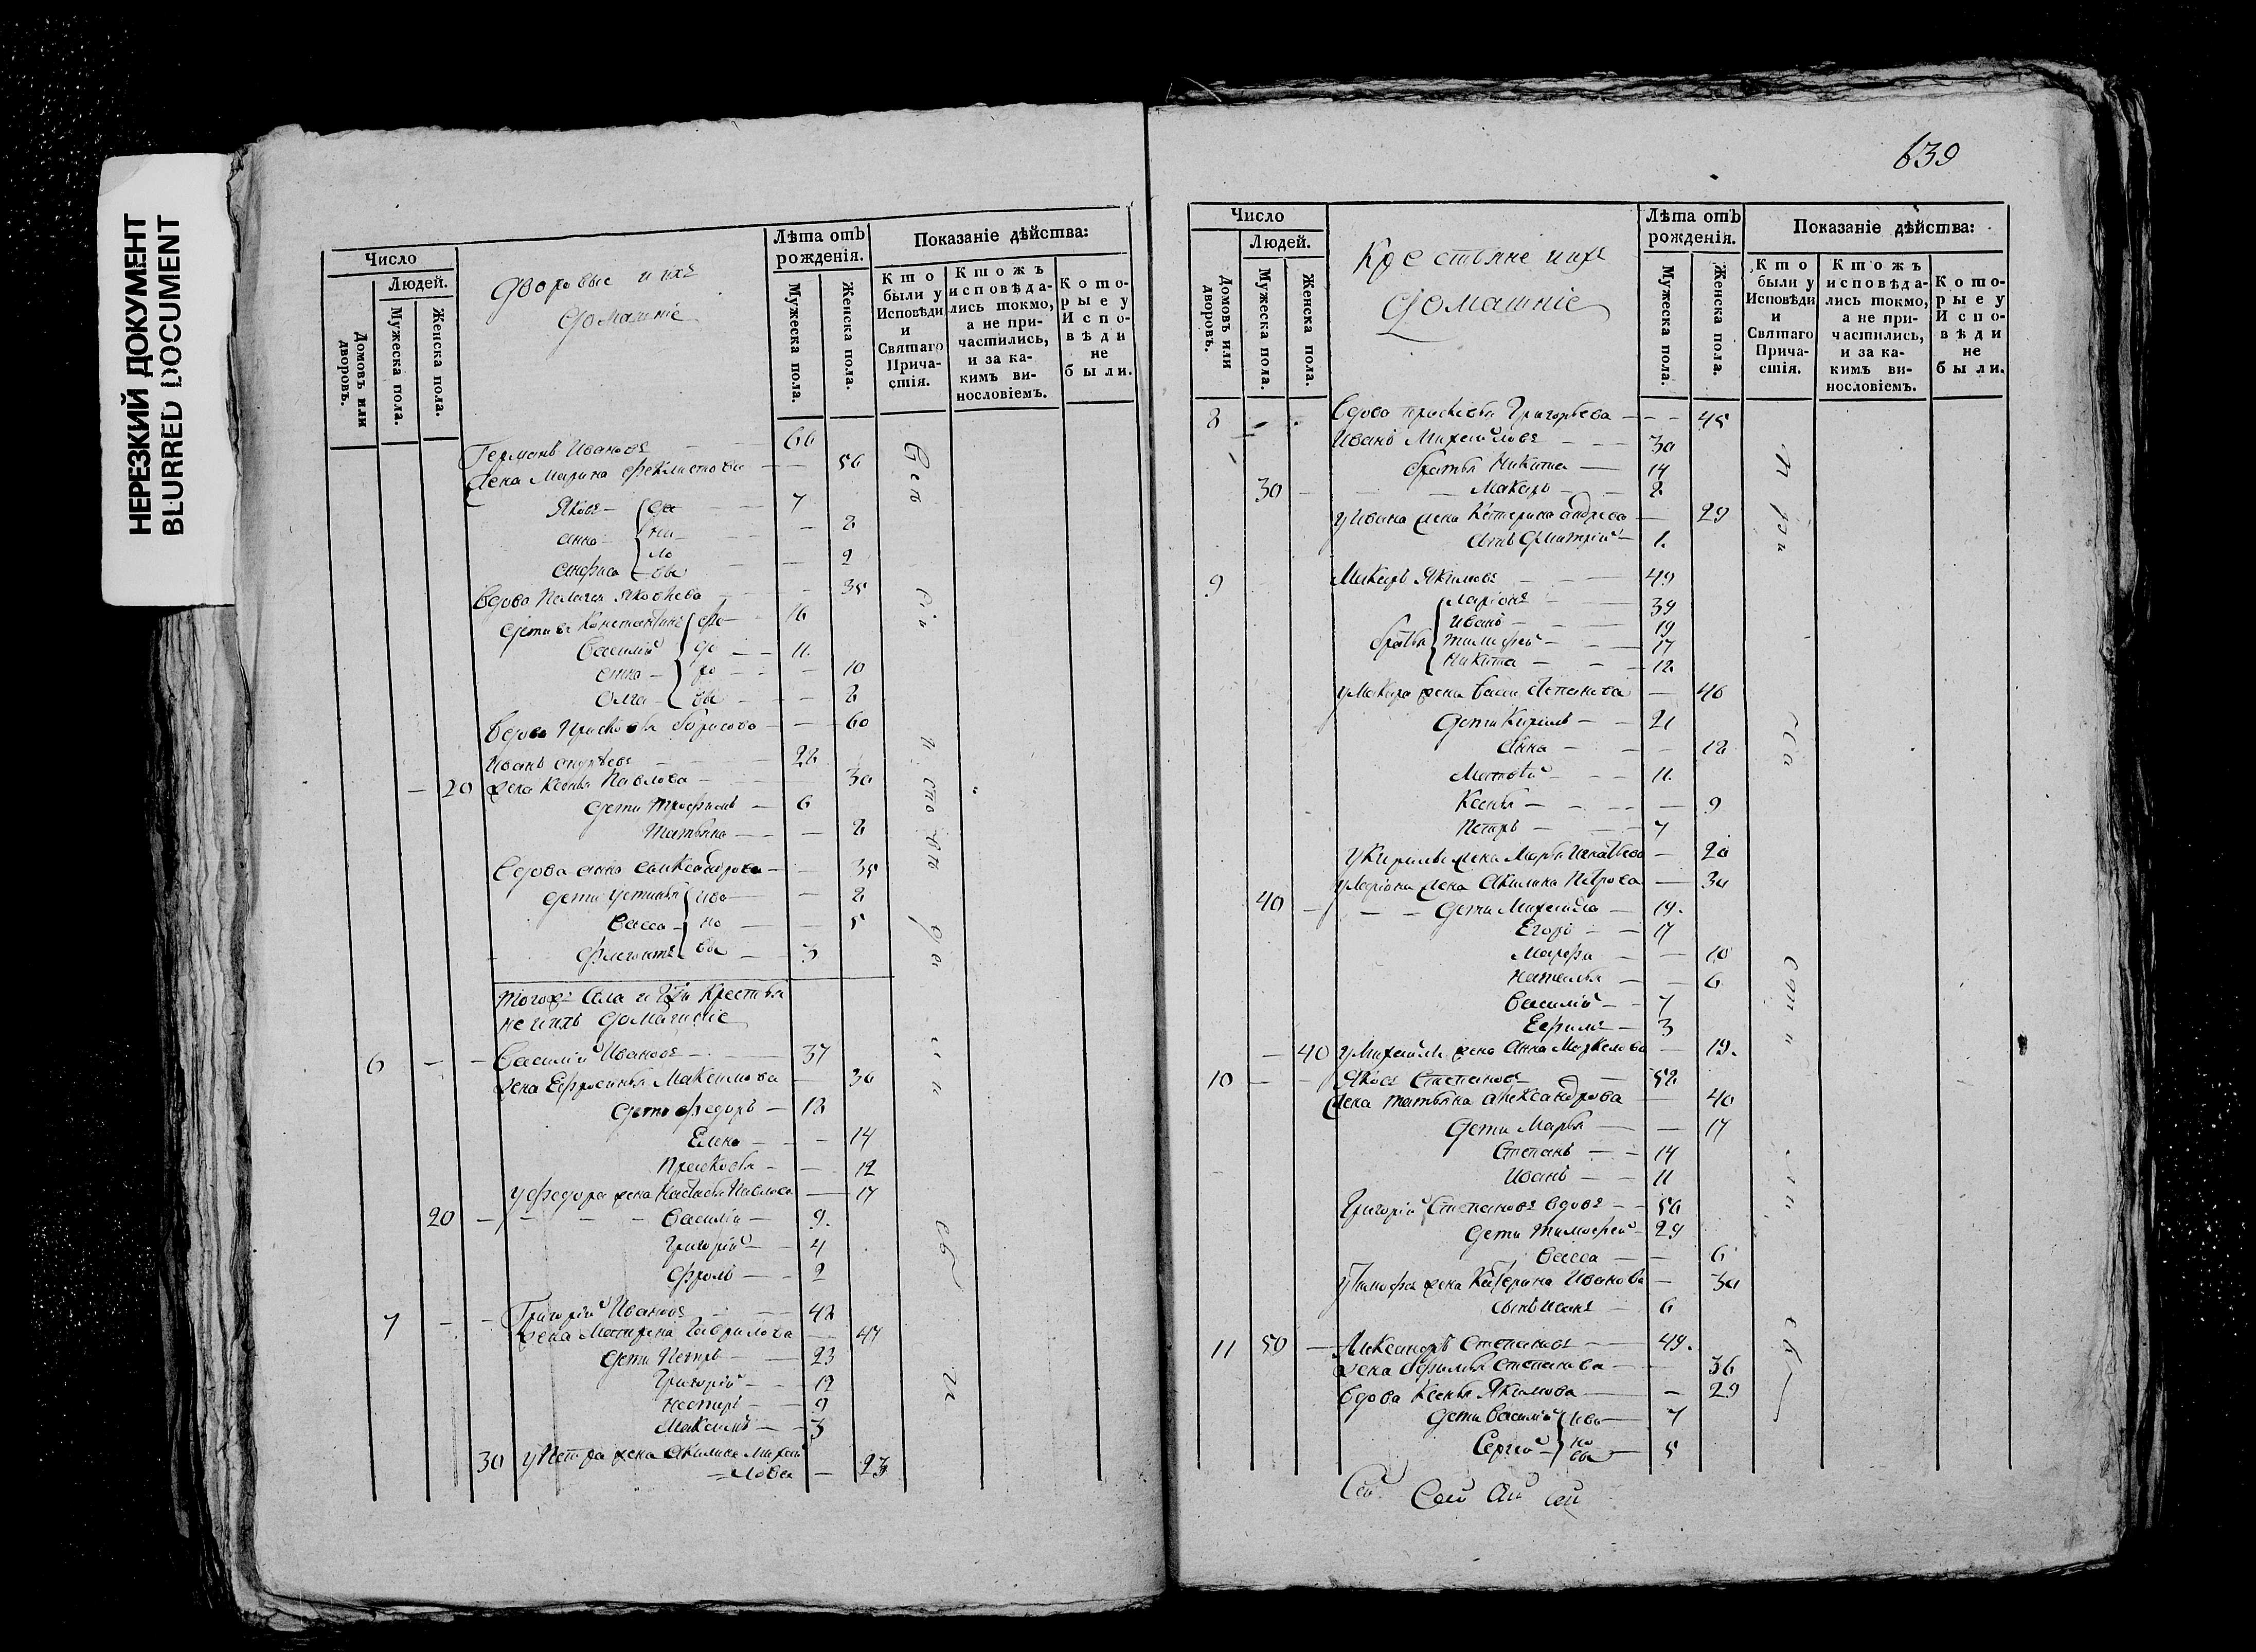 НЕРЕЗКИЙ ДОКУМЕНТ
BLURRED DOCUMENT
Число
Людей.
Домовъ или дворовъ.
Мужеска пола.
Женска пола.
Дворовые и ихъ
Домашніе
Лѣта отъ рожденія.
Мужеска пола.
Женска пола.
Показаніе дѣйства:
Кто были у Исповѣди и Святаго Причастія.
Ктожъ исповѣдались токмо, а не причастились, и за какимъ винословіемъ.
Которые у Исповѣди не были.
Германъ Ивановъ 60
Жена Марина Феклистова 50
Яковъ 7
Анна 8
Анфиса 2
Вдова Пелагея Яковлева 35
Дети ея Константинъ 16
Василій 11
Анна 10
Олга 8
Вдова Прасковья Борисова 60
Иванъ Андреевъ 28
20 Жена Ксенья Павлова 30
Дети Трофимъ 6
Татьяна 8
Вдова Анна Александрова 35
Дети Устинья 8
Васса 5
Флегонтъ 3
Тогожъ Села
не ихъ Домашніе
6 Василій Ивановъ 37
Жена Ефросинья Максимова 36
Дети Федоръ 18
Елена 14
Прасковья 12
у Федора жена Настасья Павлова 17
20 Василій 9
Григорій 4
Фролъ 2
7 Григорій Ивановъ 48
Жена Матрена Гаврилова 47
Дети Петръ 23
Григорій 12
Несторъ 9
Максимъ 3
30 у Петра жена Акилина Михай
=лова 23
639
Число
Людей.
Домовъ или дворовъ.
Мужеска пола.
Женска пола.
Крестьяне ихъ
Домашніе
Лѣта отъ рожденія.
Мужеска пола.
Женска пола.
Показаніе дѣйства:
Кто были у Исповѣди и Святаго Причастія.
Ктожъ исповѣдались токмо, а не причастились, и за какимъ винословіемъ.
Которые у Исповѣди не были.
8 Вдова Прасковья Григорьева 45
Иванъ Михайловъ 30
братья Никита 14
30 Макаръ 8
у Ивана жена Катерина Андреева 29
сынъ Дмитрій 1.
9 Макаръ Якимовъ 49
Ларіонъ 39
Иванъ 19
братья Тимофей 17
Никита 12
у Макара жена Степанова 46
Дети Кирилъ 21
Анна 18
Матвѣй 11
Ксенья 9
Петръ 7
у Кирилы жена Марья Игнатьева 20
у Ларіона жена Акилина Петрова 30
40 Дети Михайла 19.
Егоръ 17
Марфа 10
Наталья 6
Василій 7
Ефимъ 3
40 у Михайлы жена Анна Маркелова 19.
10 Яковъ Степановъ 52
Жена Татьяна Александрова 40
Дети Марья 17
Степанъ 14
Иванъ 11
Григорій Степановъ вдовъ 50
Дети Тимофей 29
Васса 6
у Тимофея жена Катерина Иванова 30
сынъ 6
11 50 Александръ Степановъ 49.
Жена Афимья Степанова 36
Вдова Ксенья Якимова 29
Дети Василій 7
Сергей 5